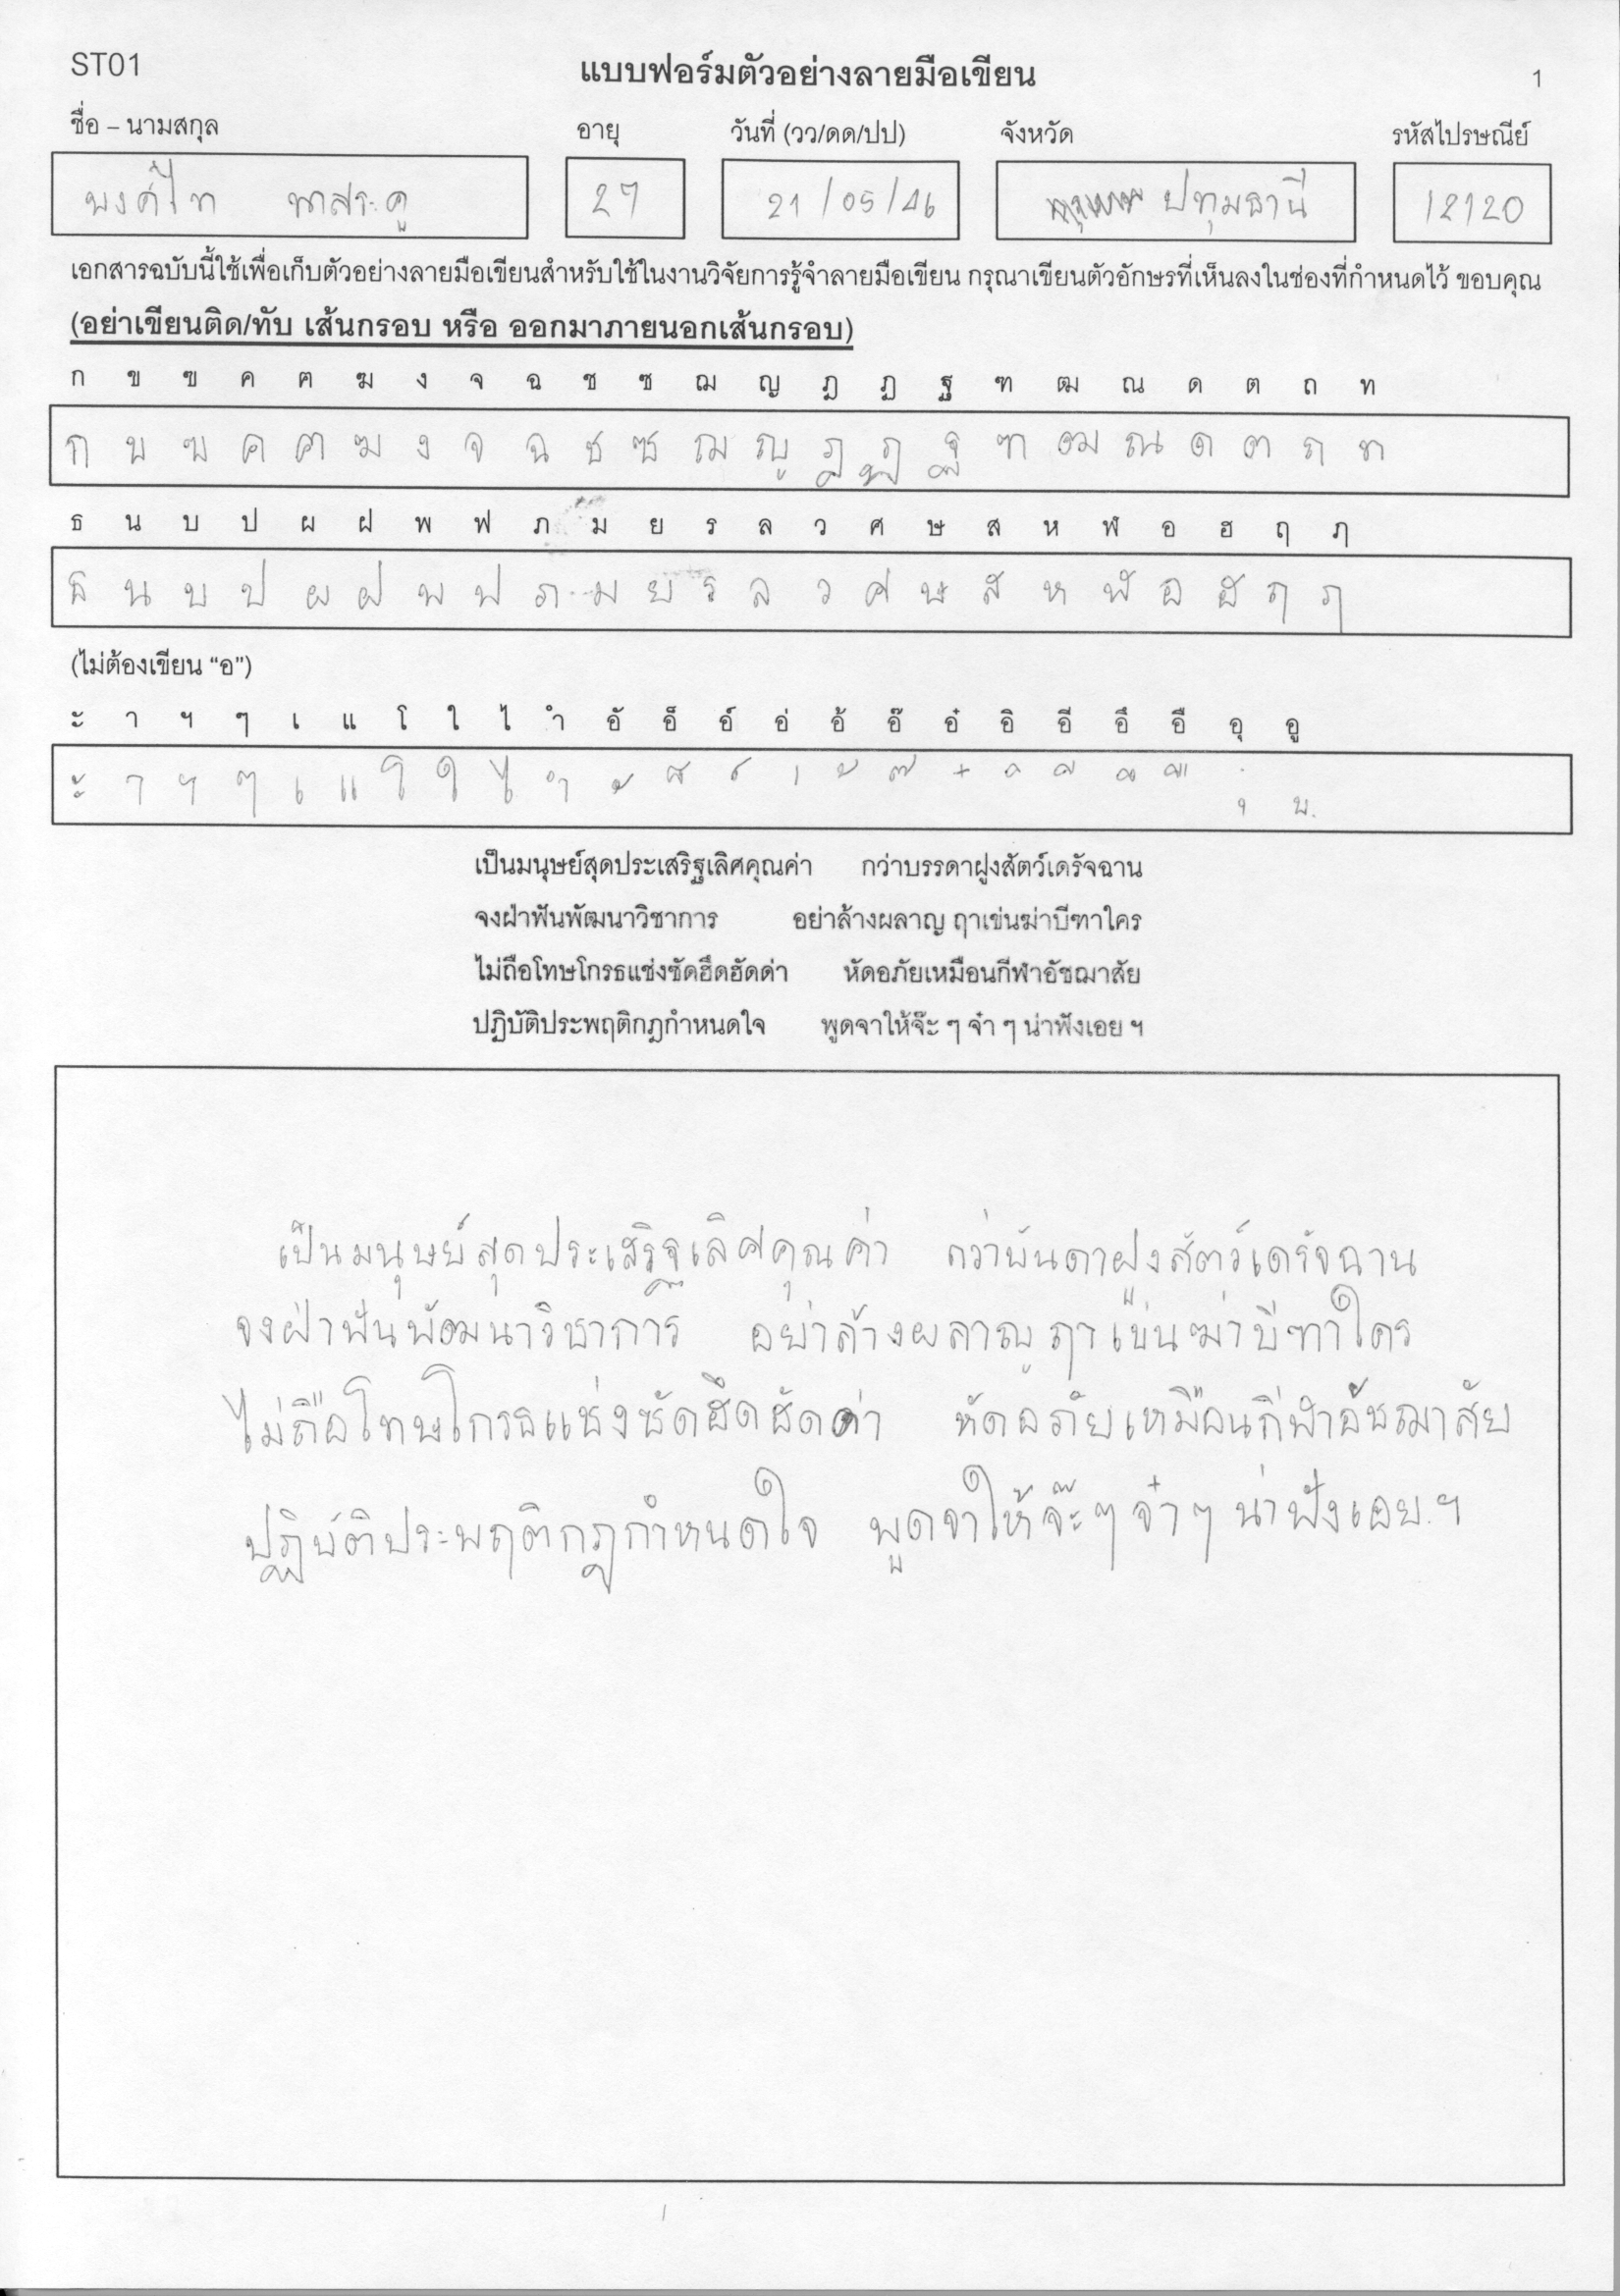 ST01 แบบฟอร์มตัวอย่างลายมือเขียน 1
ชื่อ – นามสกุล อายุ วันที่ (วว/ดด/ปป) จังหวัด รหัสไปรษณีย์
27 21/05/46 ปทุมธานี 12120
เอกสารฉบับนี้ใช้เพื่อเก็บตัวอย่างลายมือเขียนสำหรับใช้ในงานวิจัยการรู้จำลายมือเขียน กรุณาเขียนตัวอักษรที่เห็นลงในช่องที่กำหนดไว้ ขอบคุณ
(อย่าเขียนติด/ทับ เส้นกรอบ หรือ ออกมาภายนอกเส้นกรอบ)
ก ข ฃ ค ฅ ฆ ง จ ฉ ช ซ ฌ ญ ฎ ฏ ฐ ฑ ฒ ณ ด ต ถ ท
ก ข ฃ ค ฅ ฆ ง จ ฉ ช ซ ฌ ญ ฎ ฏ ฐ ฑ ฒ ณ ด ต ถ ท
ธ น บ ป ผ ฝ พ ฟ ภ ม ย ร ล ว ศ ษ ส ห ฬ อ ฮ ฤ ฦ
ธ น บ ป ผ ฝ พ ฟ ภ ม ย ร ล ว ศ ษ ส ห ฬ อ ฮ ฤ ฦ
(ไม่ต้องเขียน “อ”)
ะ า ฯ ๆ เ แ โ ใ ไ ำ อั อ็ อ์ อ่ อ้ อ๊ อ๋ อิ อี อึ อื อุ อู
ะ า ฯ ๆ เ แ โ ใ ไ ำ ั ็ ์ ่ ้ ๊ ๋ ิ ี ึ ื ุ ู
เป็นมนุษย์สุดประเสริฐเลิศคุณค่า กว่าบรรดาฝูงสัตว์เดรัจฉาน
จงฝ่าฟันพัฒนาวิชาการ อย่าล้างผลาญ ฤาเข่นฆ่าบีฑาใคร
ไม่ถือโทษโกรธแช่งซัดฮึดฮัดด่า หัดอภัยเหมือนกีฬาอัชฌาสัย
ปฏิบัติประพฤติกฎกำหนดใจ พูดจาให้จ๊ะ ๆ จ๋า ๆ น่าฟังเอย ฯ
เป็นมนุษย์สุดประเสริฐเลิศคุณค่า กว่าบันดาฝูงสัตว์เดรัจฉาน
จงฝ่าฟันพัฒนาวิชาการ อย่าล้างผลาญฤาเข่นฆ่าบีฑาใคร
ไม่ถือโทษโกรธแช่งซัดฮึดฮัดด่า หัดอภัยเหมือนกีฬาอัชฌาสัย
ปฏิบัติประพฤติกฎกำหนดใจ พูดจาให้จ๊ะๆ จ๋าๆ น่าฟังเอย ฯ